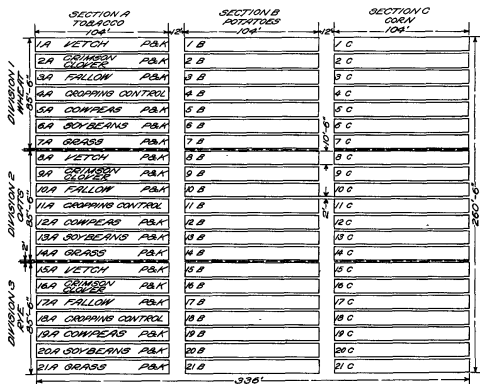 SECTION A
TOBACCO
104'
12'
SECTION B
POTATOES
104'
12'
SECTION C
CORN
104'
DIVISION 1
WHEAT
85'-6"
1A VETCH P&K 1 B 1 C
2A CRIMSON CLOVER P&K 2 B 2 C
3A FALLOW P&K 3 B 3 C
4A CROPPING CONTROL 4 B 4 C
5A COWPEAS P&K 5 B 5 C
6A SOYBEANS P&K 6 B 6 C
7A GRASS P&K 7 B 7 C
DIVISION 2
OATS
85'-6"
8A VETCH P&K 8 B 8 C
9A CRIMSON CLOVER P&K 9 B 9 C
10A FALLOW P&K 10 B 10 C
11A CROPPING CONTROL 11 B 11 C
12A COWPEAS P&K 12 B 12 C
13A SOYBEANS P&K 13 B 13 C
14A GRASS P&K 14 B 14 C
2'
10'-6"
2'
260'-6"
DIVISION 3
RYE
85'-6"
15A VETCH P&K 15 B 15 C
16A CRIMSON CLOVER P&K 16 B 16 C
17A FALLOW P&K 17 B 17 C
18A CROPPING CONTROL 18 B 18 C
19A COWPEAS P&K 19 B 19 C
20A SOYBEANS P&K 20 B 20 C
21A GRASS P&K 21 B 21 C
336'